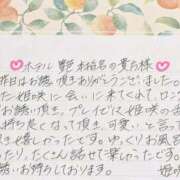 ♡ホテル 艶 本指名の貴方様♡
昨日はお誘い頂きありがとうございました。
姫咲に会いに来てくれて、ロン
お誘い頂き、プレイでは姫咲の
持ち良くなって頂き、可愛いと言っ
き嬉しかったです。ゆっくりお風呂
たり、たくさん話せて楽しかったです。
お誘いお待ちしております。
姫咲